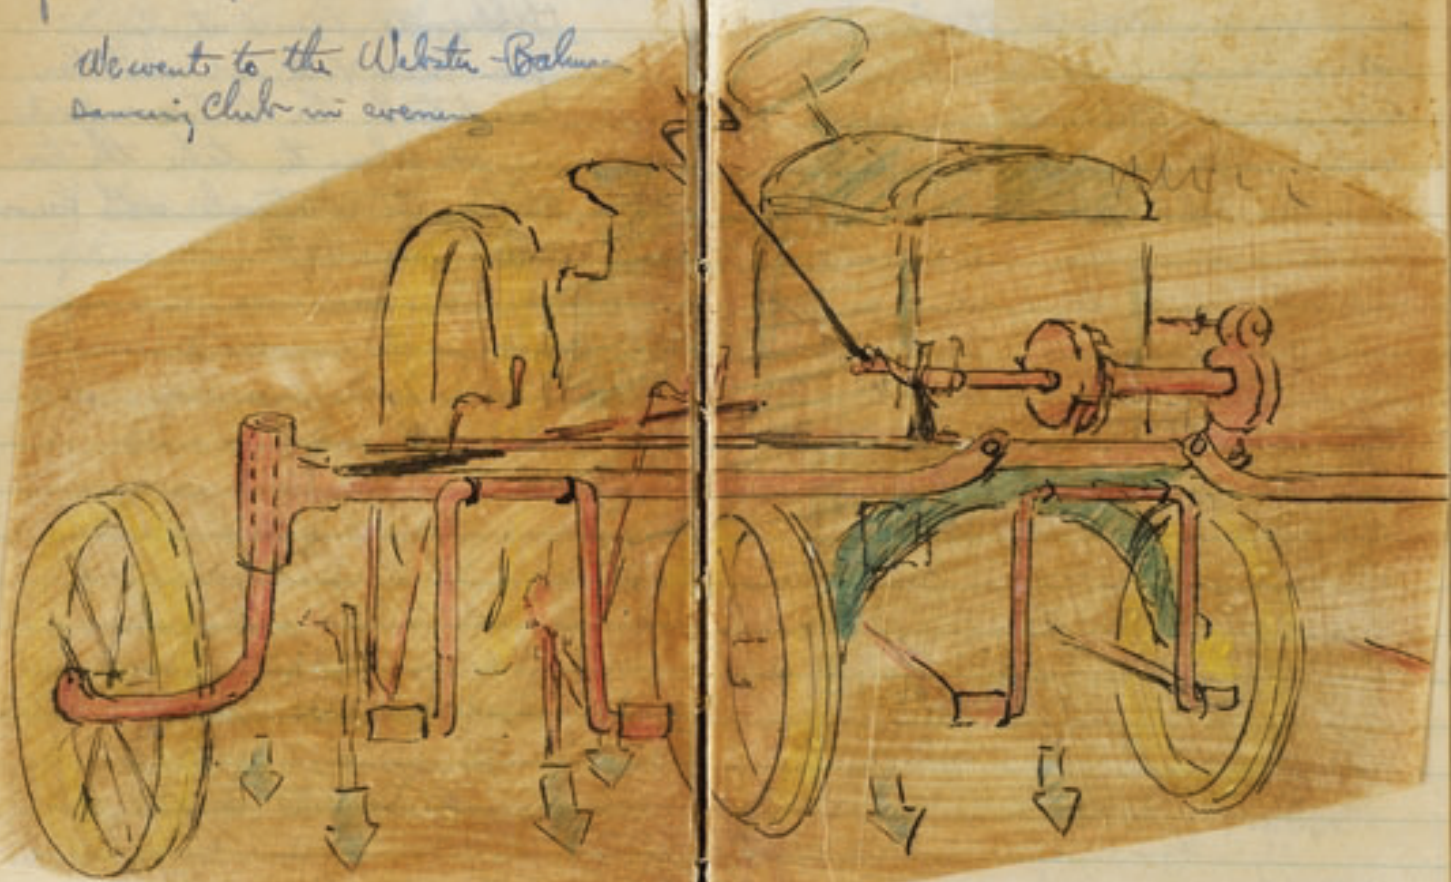 We went to the Webster -
Dancing Club in evening